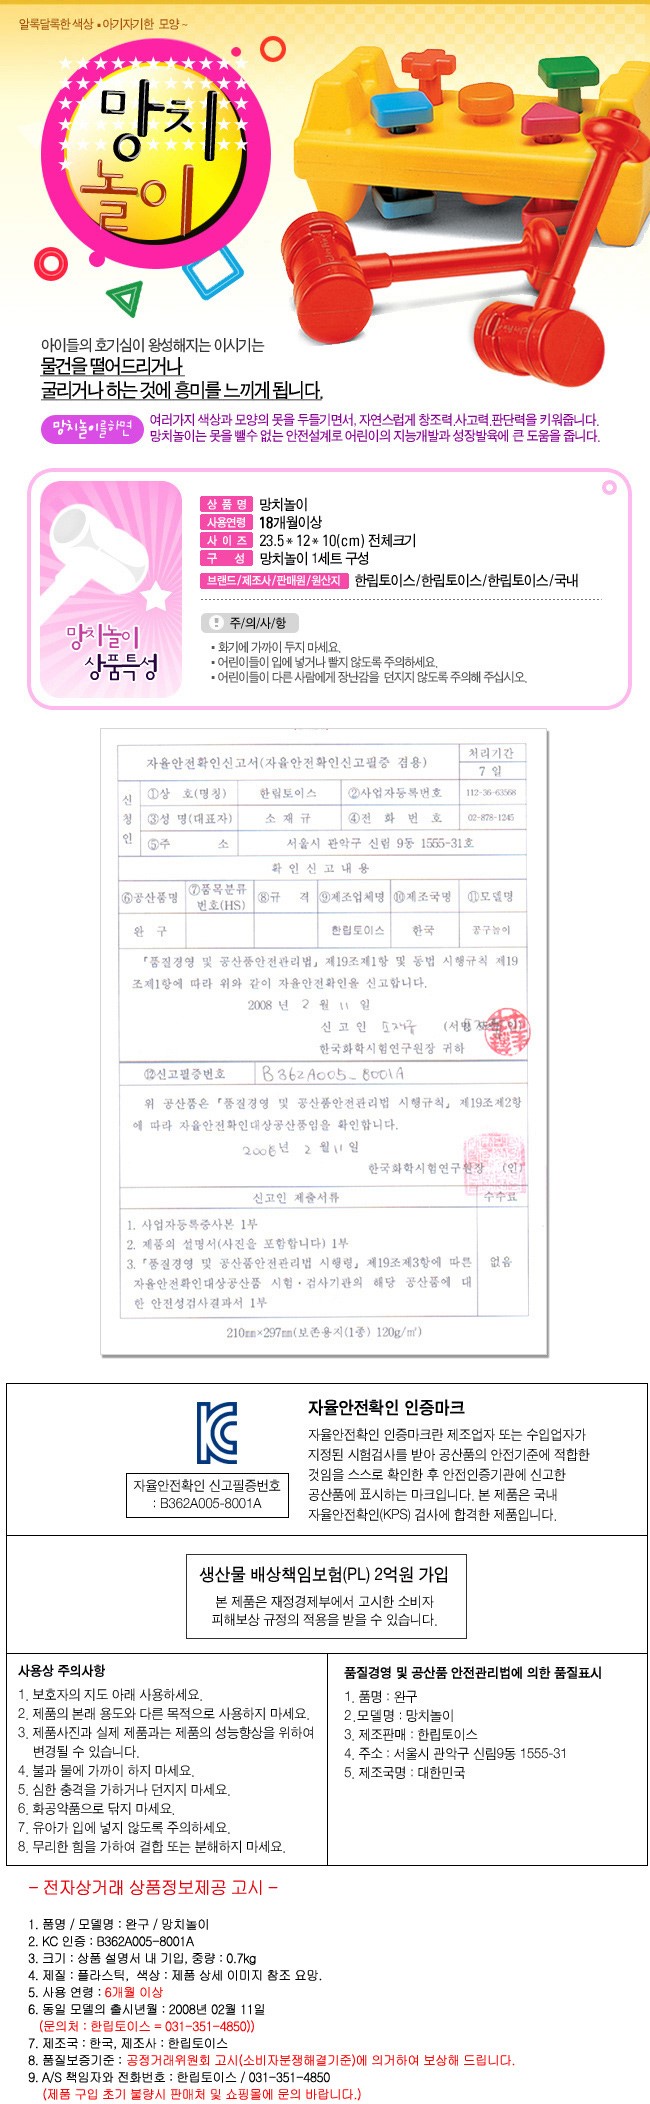 알록달록한 색상 ▪ 아기자기한 모양 ~
망치
놀이
아이들의 호기심이 왕성해지는 이시기는
물건을 떨어드리거나
굴리거나 하는 것에 흥미를 느끼게 됩니다.
망치놀이를하면
여러가지 색상과 모양의 못을 두들기면서, 자연스럽게 창조력,사고력,판단력을 키워줍니다.
망치놀이는 못을 뺄수 없는 안전설계로 어린이의 지능개발과 성장발육에 큰 도움을 줍니다.
망치놀이
상품특성
상 품 명 망치놀이
사용연령 18개월이상
사 이 즈 23.5 * 12 * 10(cm) 전체크기
구 성 망치놀이 1세트 구성
브랜드/제조사/판매원/원산지 한림토이스/한림토이스/한림토이스/국내
주/의/사/항
▪ 화기에 가까이 두지 마세요.
▪ 어린이들이 입에 넣거나 빨지 않도록 주의하세요.
▪ 어린이들이 다른 사람에게 장난감을 던지지 않도록 주의해 주십시오.
자율안전확인신고서(자율안전확인신고필증 겸용)
처리기간
7 일
신청인
①상 호(명칭) 한림토이스 ②사업자등록번호 112-36-63568
③성 명(대표자) 소 재 규 ④전 화 번 호 02-878-1245
⑤주 소 서울시 관악구 신림 9동 1555-31호
확 인 신 고 내 용
⑥공산품명 ⑦품목분류번호(HS) ⑧규 격 ⑨제조업체명 ⑩제조국명 ⑪모델명
완 구 한림토이스 한국 공구놀이
「품질경영 및 공산품안전관리법」 제19조제1항 및 동법 시행규칙 제19
조제1항에 따라 위와 같이 자율안전확인을 신고합니다.
2008 년 2 월 11 일
신 고 인 소재규 (서명 또는 인)
한국화학시험연구원장 귀하
⑫신고필증번호 B362A005-8001A
위 공산품은 「품질경영 및 공산품안전관리법 시행규칙」 제19조제2항
에 따라 자율안전확인대상공산품임을 확인합니다.
2008년 2 월 11 일
한국화학시험연구원장 (인)
신고인 제출서류
수수료
1. 사업자등록증사본 1부
2. 제품의 설명서(사진을 포함합니다) 1부
3. 「품질경영 및 공산품안전관리법 시행령」 제19조제3항에 따른
자율안전확인대상공산품 시험·검사기관의 해당 공산품에 대
한 안전성검사결과서 1부
없음
210㎜×297㎜(보존용지(1종) 120g/㎡)
자율안전확인 신고필증번호
: B362A005-8001A
자율안전확인 인증마크
자율안전확인 인증마크란 제조업자 또는 수입업자가
지정된 시험검사를 받아 공산품의 안전기준에 적합한
것임을 스스로 확인한 후 안전인증기관에 신고한
공산품에 표시하는 마크입니다. 본 제품은 국내
자율안전확인(KPS) 검사에 합격한 제품입니다.
생산물 배상책임보험(PL) 2억원 가입
본 제품은 재정경제부에서 고시한 소비자
피해보상 규정의 적용을 받을 수 있습니다.
사용상 주의사항
1. 보호자의 지도 아래 사용하세요.
2. 제품의 본래 용도와 다른 목적으로 사용하지 마세요.
3. 제품사진과 실제 제품과는 제품의 성능향상을 위하여
변경될 수 있습니다.
4. 불과 물에 가까이 하지 마세요.
5. 심한 충격을 가하거나 던지지 마세요.
6. 화공약품으로 닦지 마세요.
7. 유아가 입에 넣지 않도록 주의하세요.
8. 무리한 힘을 가하여 결합 또는 분해하지 마세요.
품질경영 및 공산품 안전관리법에 의한 품질표시
1. 품명 : 완구
2.모델명 : 망치놀이
3. 제조판매 : 한립토이스
4. 주소 : 서울시 관악구 신림9동 1555-31
5. 제조국명 : 대한민국
- 전자상거래 상품정보제공 고시 -
1. 품명 / 모델명 : 완구 / 망치놀이
2. KC 인증 : B362A005-8001A
3. 크기 : 상품 설명서 내 기입, 중량 : 0.7kg
4. 제질 : 플라스틱, 색상 : 제품 상세 이미지 참조 요망.
5. 사용 연령 : 6개월 이상
6. 동일 모델의 출시년월 : 2008년 02월 11일
(문의처 : 한립토이스 = 031-351-4850))
7. 제조국 : 한국, 제조사 : 한립토이스
8. 품질보증기준 : 공정거래위원회 고시(소비자분쟁해결기준)에 의거하여 보상해 드립니다.
9. A/S 책임자와 전화번호 : 한립토이스 / 031-351-4850
(제품 구입 초기 불량시 판매처 및 쇼핑몰에 문의 바랍니다.)